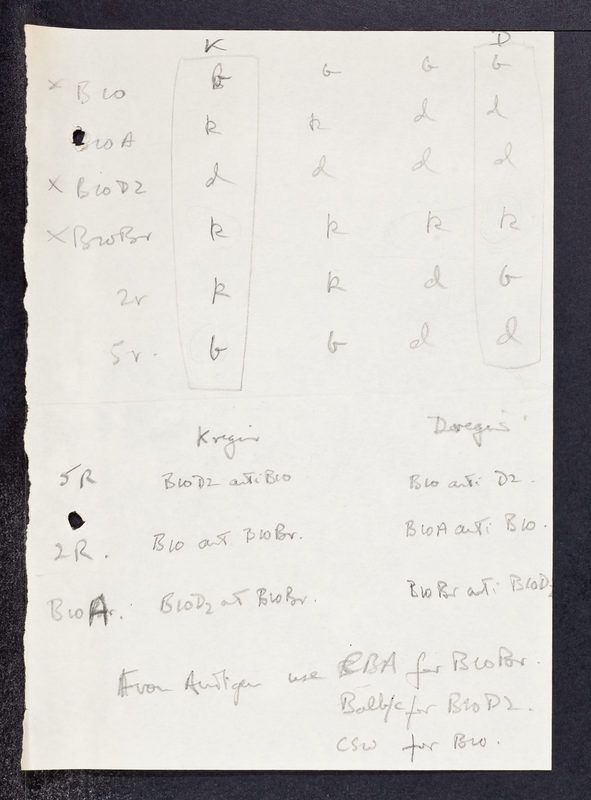 K D
x B10 b b b b
B10A k k d d
x B10D2 d d d d
x B10Br k k k k
2r k k d b
5r. b b d d
K region D region
5R B10D2 anti B10 B10 anti D2.
2R. B10 anti B10Br. B10A anti B10.
B10A. B10D2 anti B10Br. B10Br anti B10D2
Antigen use CBA for B10Br.
Balb/c for B10D2.
CSW for B10.